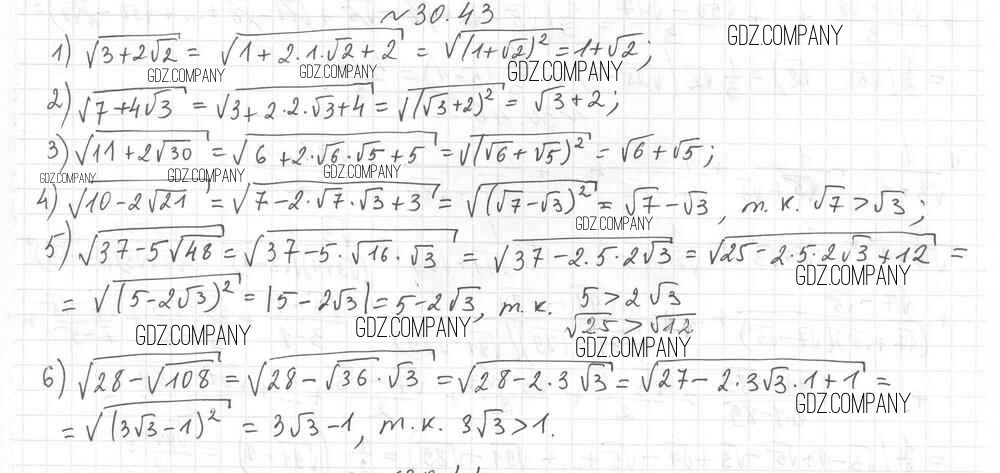 №30.43
GDZ.COMPANY
1) √(3+2√2) = √(1+2·1·√2+2) = √((1+√2)²) = 1+√2;
GDZ.COMPANY GDZ.COMPANY GDZ.COMPANY
2) √(7+4√3) = √(3+2·2·√3+4) = √((√3+2)²) = √3+2;
3) √(11+2√30) = √(6+2·√6·√5+5) = √((√6+√5)²) = √6+√5;
GDZ.COMPANY GDZ.COMPANY GDZ.COMPANY
4) √(10-2√21) = √(7-2·√7·√3+3) = √((√7-√3)²) = √7-√3, т.к. √7>√3;
GDZ.COMPANY
5) √(37-5√48) = √(37-5·√16·√3) = √(37-2·5·2√3) = √(25-2·5·2√3+12) =
GDZ.COMPANY
= √((5-2√3)²) = |5-2√3| = 5-2√3, т.к. 5>2√3
√25>√12
GDZ.COMPANY GDZ.COMPANY GDZ.COMPANY
6) √(28-√108) = √(28-√36·√3) = √(28-2·3√3) = √(27-2·3√3·1+1) =
GDZ.COMPANY
= √((3√3-1)²) = 3√3-1, т.к. 3√3>1.